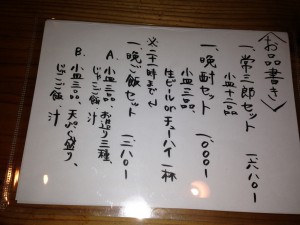 お品書き
一、常三郎セット 一、六八〇ー
小皿十二品
一、晩酌セット 一、〇〇〇ー
小皿三品
生ビール or チューハイ 一杯
※二十一時まで
一、晩ご飯セット 一、二八〇ー
A. 小皿三品、お造り三種、
じゃこご飯、汁
B. 小皿三品、天ぷら盛り、
じゃこご飯、汁